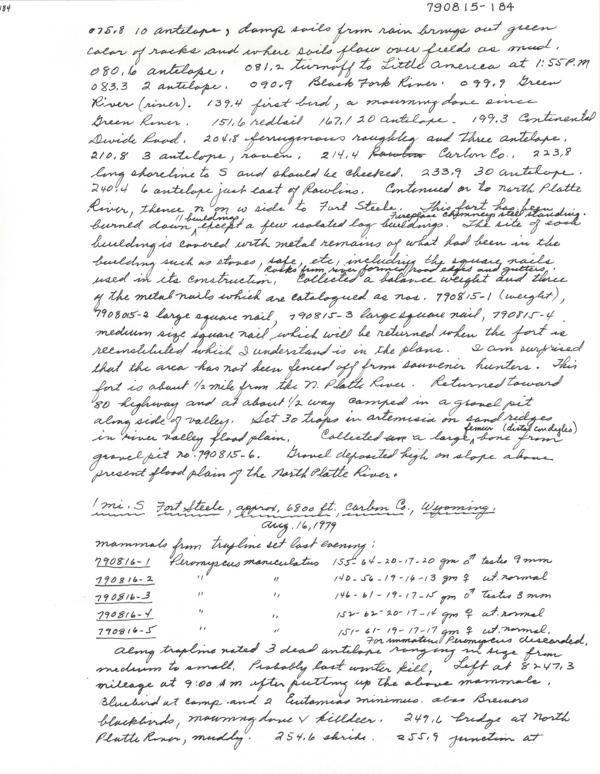 184
790815-184
075.8 10 antelope, damp soils from rain brings out green
color of rocks and where soils flow over fields as mud.
080.6 antelope. 081.2 turnoff to Little America at 1:55 P.M
083.3 2 antelope. 090.9 Black Fork River. 099.9 Green
River (river). 139.4 first bird, a mourning dove since
Green River. 151.6 redtail 167.1 20 antelope. 199.3 Continental
Divide Road. 204.8 ferruginous roughleg and three antelope.
210.8 3 antelope, raven. 214.4 Carbon Co., 223.8
long shoreline to S and should be checked. 233.9 30 antelope.
240.4 6 antelope just east of Rawlins. Continued on to North Platte
River, thence n on w side to Fort Steele. This fort has been
burned down, except a few isolated log buildings. Fireplace chimneys still standing. The site of each
11 buildings
building is covered with metal remains of what had been in the
building such as stoves, safe, etc, including the square nails
used in its construction. Rocks from river formed road edges and gutters. Collected a balance weight and three
of the metal nails which are catalogued as nos. 790815-1 (weight),
790805-2 large square nail, 790815-3 large square nail, 790815-4
medium size square nail which will be returned when the fort is
reconstituted which I understand is in the plans. I am surprised
that the area has not been fenced off from souvenir hunters. This
fort is about 1/2 mile from the N. Platte River. Returned toward
80 highway and at about 1/2 way camped in a gravel pit
along side of valley. Set 30 traps in artemisia on sand ridges
in river valley flood plain. Collected a large, bone from
femur (distal condyles)
gravel pit no. 790815-6. Gravel deposited high on slope above
present flood plain of the North Platte River.
1 mi. S Fort Steele, approx. 6800 ft. Carbon Co., Wyoming.
Aug. 16, 1979
Mammals from trapline set last evening:
790816-1 Peromyscus maniculatus 155-64-20-17-20 gm ♂ testes 9 mm
790816-2 " " 140-56-19-16-13 gm ♀ ut. normal
790816-3 " " 146-61-19-17-15 gm ♂ testes 3 mm
790816-4 " " 152-62-20-17-14 gm ♀ ut. normal
790816-5 " " 151-61-19-17-17 gm ♀ ut. normal.
Four immature Peromyscus discarded.
Along trapline noted 3 dead antelope ranging in size from
medium to small. Probably last winter kill. Left at 8247.3
mileage at 9:00 AM after putting up the above mammals.
Bluebird at camp and 2 Eutamias minimus. also Brewers
blackbirds, mourning dove & killdeer. 249.6 bridge at North
Platte River, muddy. 254.6 shrike. 255.9 junction at